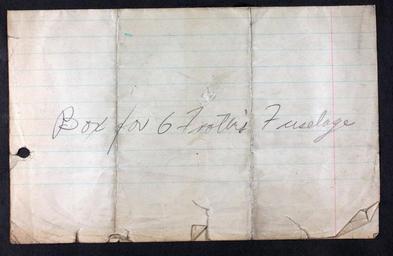 Box for 6 Froth's Fuselage